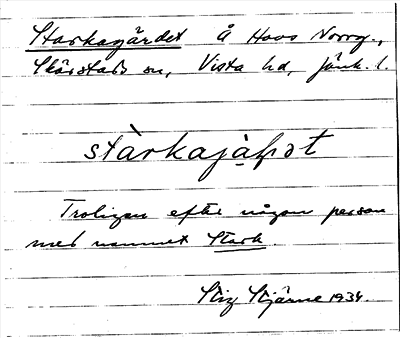 Starkagärdet Å Hovs Norrg.,
Skärstads sn, Vista hd, Jönk. l.
stàrkajạḷṣət
Troligen efter någon person
med namnet Stark.
Stig Stjärne 1934.